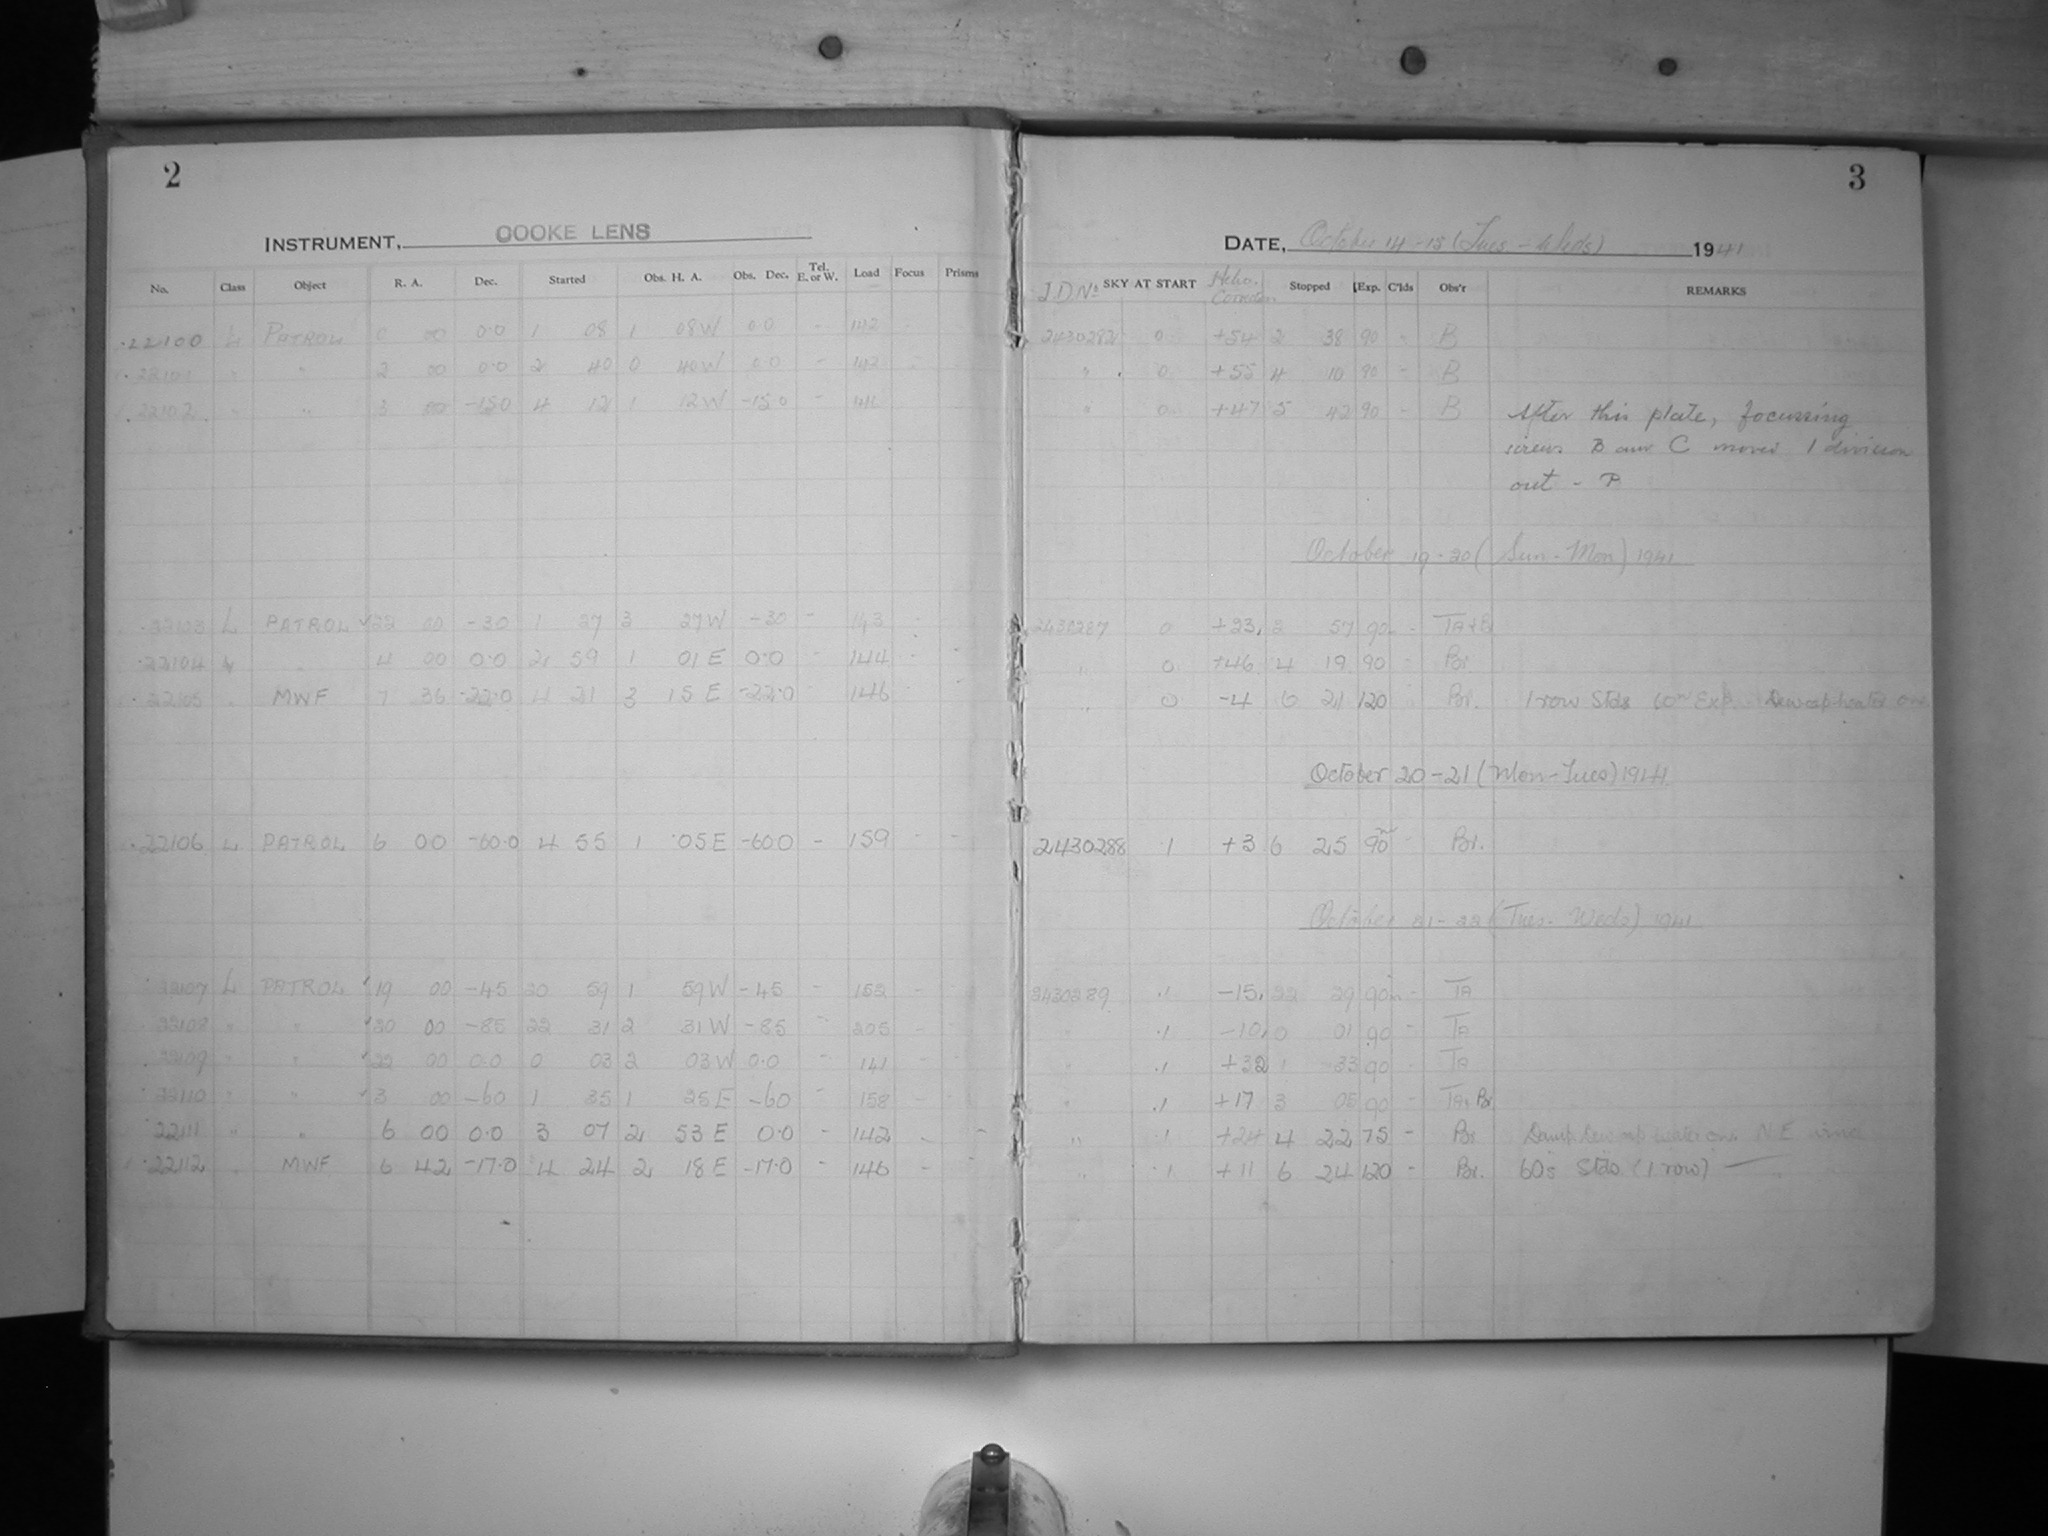 2
INSTRUMENT, COOKE LENS
No. Class Object R. A. Dec. Started Obs. H. A. Obs. Dec. Tel. E. or W. Load Focus Prisms
22100 L PATROL 0 00 0.0 1 08 1 08W 0.0 - 142
22101 " " 2 00 0.0 2 40 0 40W 0.0 - 142
22102 " " 3 00 -15.0 4 12 1 12W -15.0 - 141
22103 L PATROL ✓22 00 -30 1 27 3 27W -30 - 143 -
22104 " 4 00 0.0 2 59 1 01E 0.0 - 144 - -
22105 " MWF 7 36 -22.0 4 21 3 15E -22.0 - 146 - -
22106 L PATROL 6 00 -60.0 4 55 1 05E -60.0 - 159 - -
22107 L PATROL ✓19 00 -45 20 59 1 59W -45 - 152 - -
22108 " " ✓20 00 -85 22 31 2 31W -85 - 205 - -
22109 " " ✓22 00 0.0 0 03 2 03W 0.0 - 141 - -
22110 " " ✓3 00 -60 1 35 1 25E -60 - 158 - -
22111 " " 6 00 0.0 3 07 2 53E 0.0 - 142 - -
22112 " MWF 6 42 -17.0 4 24 2 18E -17.0 - 146 - -
3
DATE, October 14-15 (Tues - Weds) 1941
J.D. No SKY AT START Helio. Correction Stopped Exp. C'lds Obs'r REMARKS
2430282 0 +54 2 38 90 - B
" 0 +55 4 10 90 - B
" 0 +47 5 42 90 - B After this plate, focussing
screws B and C moved 1 division
out - P
October 19-20 (Sun-Mon) 1941
2430287 0 +23 2 57 90 - TA+B
" 0 +46 4 19 90 - Br.
" 0 -4 6 21 120 Br. 1 row Stds 60 Exp. Dewcap heater on
October 20-21 (Mon-Tues) 1941
2430288 1 +3 6 25 90 - Br.
October 21-22 (Tues-Weds) 1941
2430289 .1 -15 22 29 90m - TA
" .1 -10 0 01 90 - TA
" .1 +32 1 33 90 - TA
" .1 +17 3 05 90 - TA+Br
" .1 +24 4 22 75 - Br Damp. Dewcap heater on. NE wind
" .1 +11 6 24 120 - Br. 60s Stds (1 row)